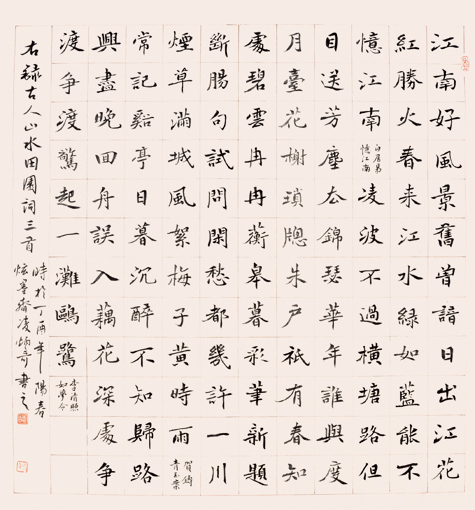 江南好風景舊曾諳日出江花
紅勝火春來江水綠如藍能不
憶江南
白居易
憶江南
凌波不過橫塘路但
目送芳塵去錦瑟華年誰與度
月臺花榭瑣牕朱戶祇有春知
處碧雲冉冉蘅皋暮彩筆新題
斷腸句試問閑愁都幾許一川
煙草滿城風絮梅子黃時雨
賀鑄
青玉案
常記谿亭日暮沉醉不知歸路
興盡晚回舟誤入藕花深處爭
渡爭渡驚起一灘鷗鷺
李清照
如夢令
右錄古人山水田園詞三首
時於丁酉年陽春
齋凌炳奇書之